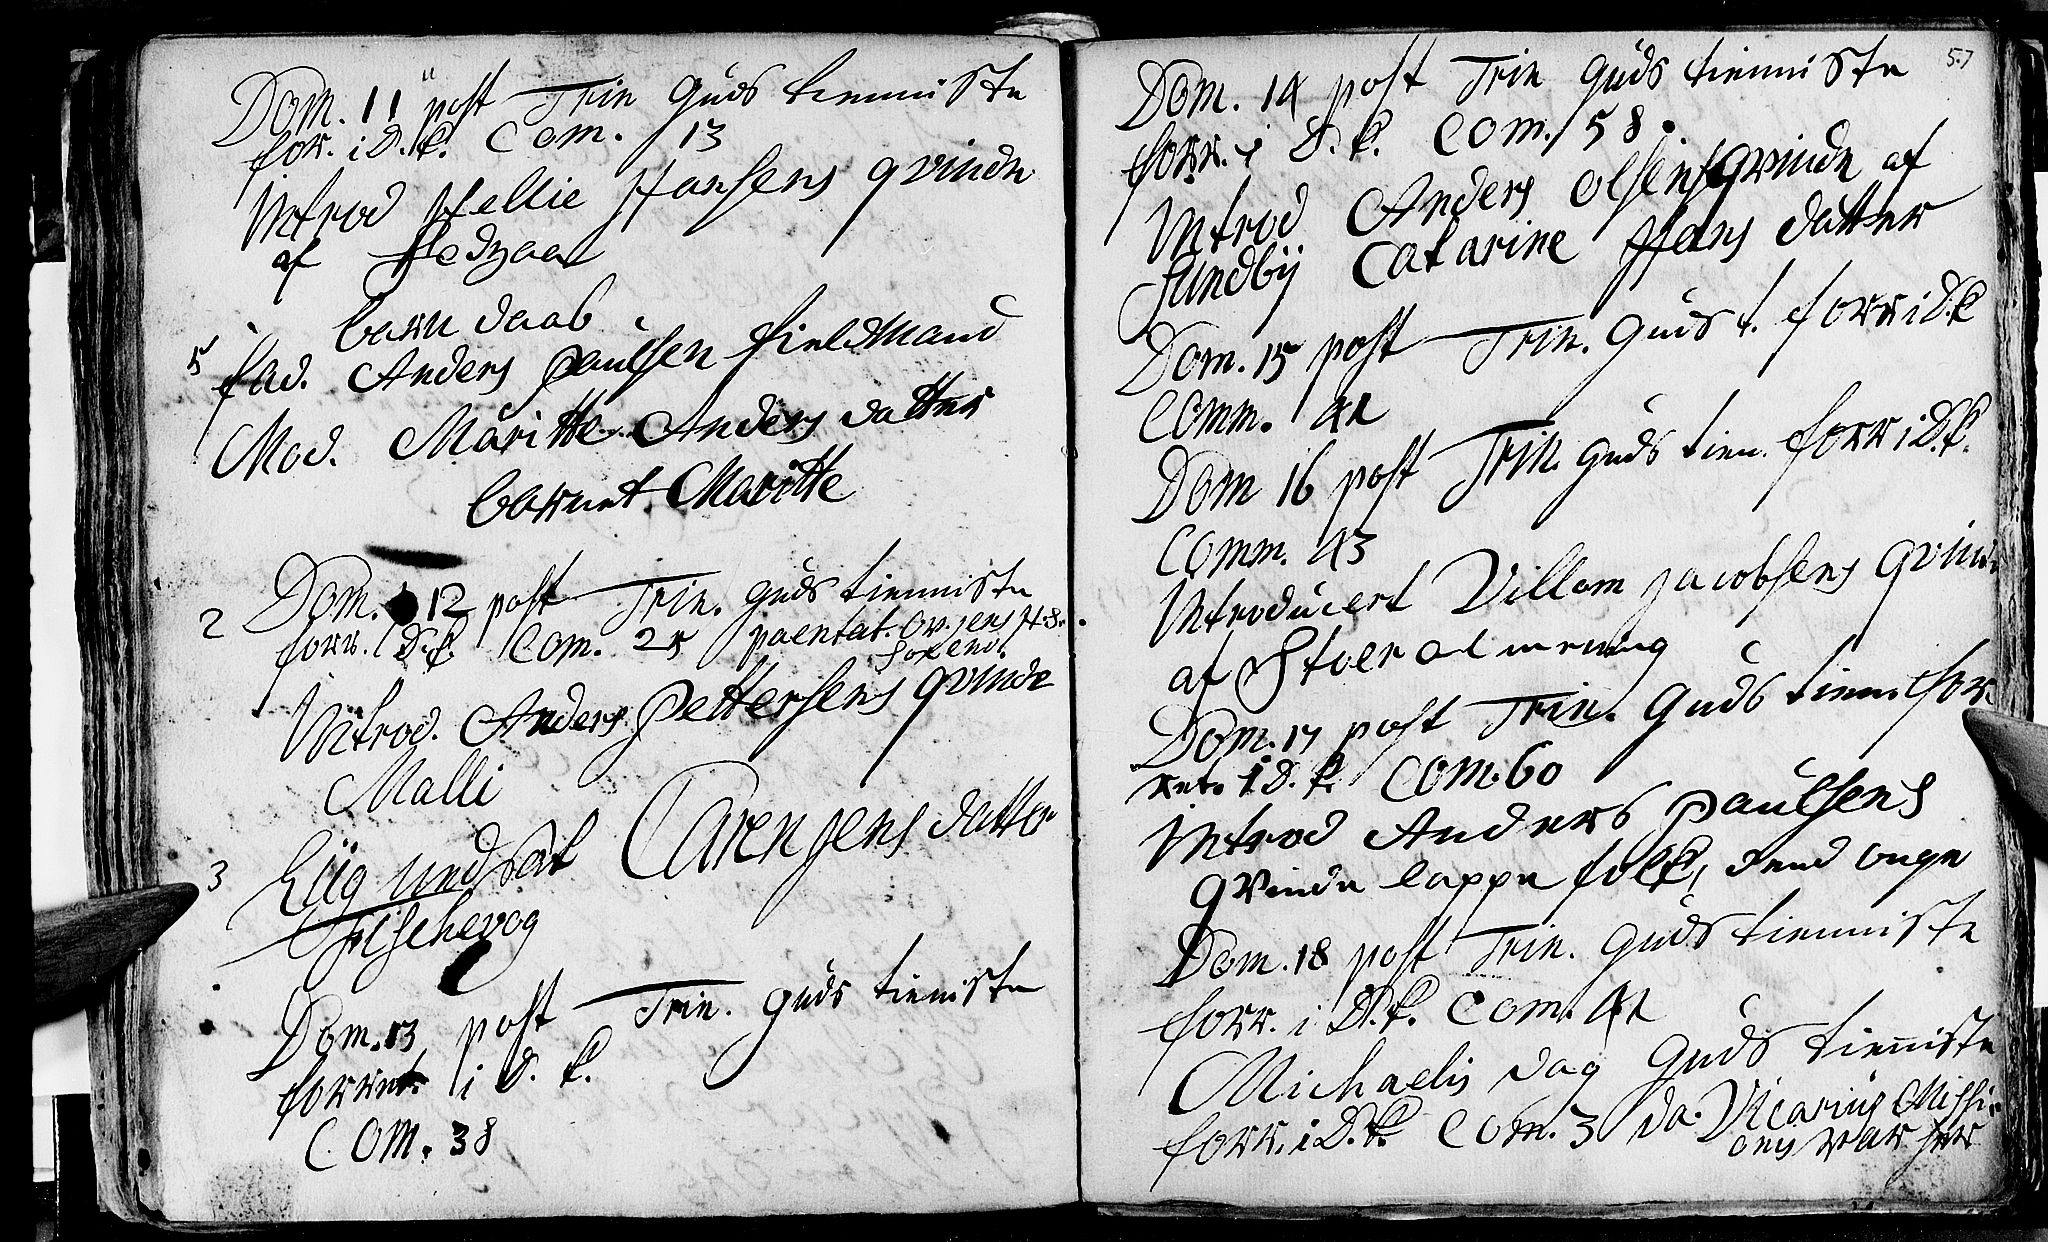 Dom. 11 post Trin Guds tienniste
forr. i D. k. Com. 13
Introd Hellie Hansens qvinde
af Hedzaal
barn daab
5 fad. Anders paulsen fieldMand
Mod. Maritte Anders datter
barnet Maritte
2 Dom. 12 post Trin. Guds tienniste
forr. i D. k. Com. 25
Introd. Anders Pettersens qvinde
Malli
3 Liig undsat Caren Jens datter
Fischevog
Dom. 13 post Trin. Guds tieniste
forret. i D. k.
Com. 38
57
Dom. 14 post Trin Guds tienniste
forr. i D. k. Com. 58.
Introd Anders olsens qvinde af
sundbÿ Catarine Hans datter
Dom. 15 post Trin. Guds t. forr i D. k
Comm. 41
Dom 16 post Trin. Guds tien. forr i D. k.
Comm. 43
Introducert Villom Jacobsens qvind
af
Dom. 17 post Trin. Guds tien. for
ret. i D. k. Com. 60
Introd Anders paulsens
qvinde lappe folk, dend unge
Dom. 18 post Trin. Guds tienniste
forr. i D. k. Com. 41
Michaelis dag Guds tienniste
forr. i D. k. Com. 3 da Vicarius Missi
onis var her